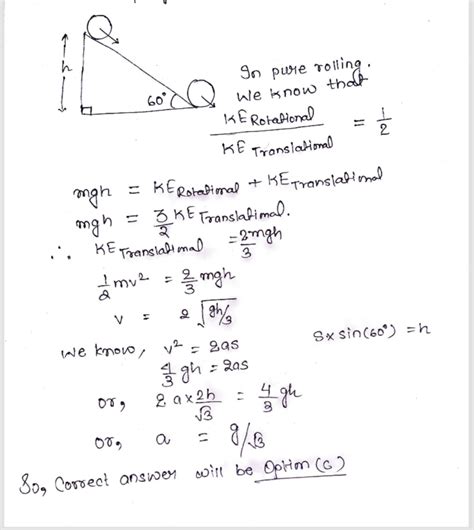 h
60°
In pure rolling.
We know that
KE Rotational / KE Translational = 1/2
mgh = KE Rotational + KE Translational
mgh = 3/2 KE Translational.
∴ KE Translational = 2mgh/3
1/2 mv² = 2/3 mgh
v = 2 √gh/3
We know, v² = 2as
S x sin(60°) = h
4/3 gh = 2as
or, 2 a x 2h/√3 = 4/3 gh
or, a = g/√3
So, Correct answer will be Option (C)